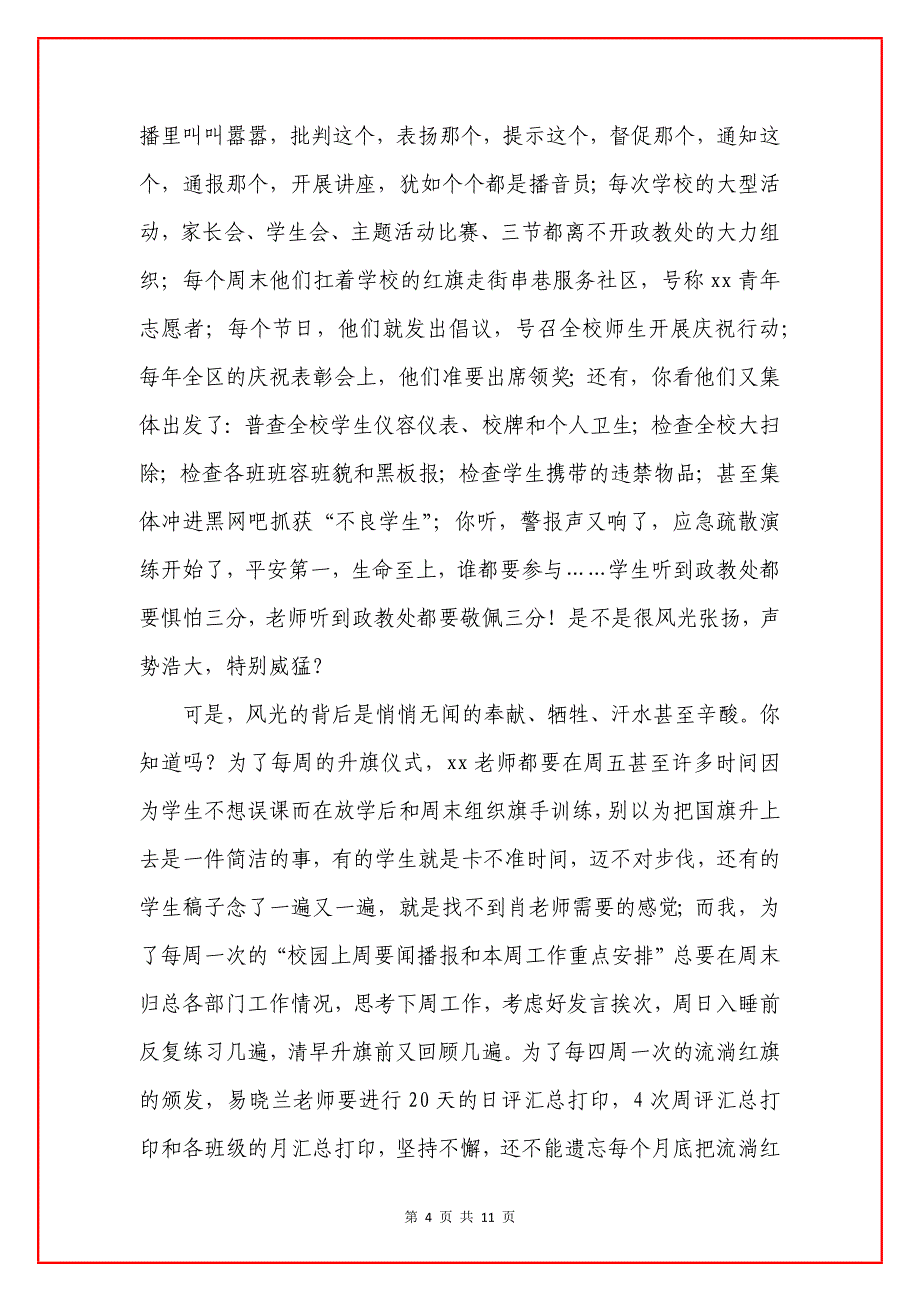 播里叫叫嚣嚣，批判这个，表扬那个，提示这个，督促那个，通知这
个，通报那个，开展讲座，犹如个个都是播音员；每次学校的大型活
动，家长会、学生会、主题活动比赛、三节都离不开政教处的大力组
织；每个周末他们扛着学校的红旗走街串巷服务社区，号称 xx 青年
志愿者；每个节日，他们就发出倡议，号召全校师生开展庆祝行动；
每年全区的庆祝表彰会上，他们准要出席领奖；还有，你看他们又集
体出发了：普查全校学生仪容仪表、校牌和个人卫生；检查全校大扫
除；检查各班班容班貌和黑板报；检查学生携带的违禁物品；甚至集
体冲进黑网吧抓获“不良学生”；你听，警报声又响了，应急疏散演
练开始了，平安第一，生命至上，谁都要参与……学生听到政教处都
要惧怕三分，老师听到政教处都要敬佩三分！是不是很风光张扬，声
势浩大，特别威猛？
可是，风光的背后是悄悄无闻的奉献、牺牲、汗水甚至辛酸。你
知道吗？为了每周的升旗仪式，xx 老师都要在周五甚至许多时间因
为学生不想误课而在放学后和周末组织旗手训练，别以为把国旗升上
去是一件简洁的事，有的学生就是卡不准时间，迈不对步伐，还有的
学生稿子念了一遍又一遍，就是找不到肖老师需要的感觉；而我，为
了每周一次的“校园上周要闻播报和本周工作重点安排”总要在周末
归总各部门工作情况，思考下周工作，考虑好发言挨次，周日入睡前
反复练习几遍，清早升旗前又回顾几遍。为了每四周一次的流淌红旗
的颁发，易晓兰老师要进行 20 天的日评汇总打印，4 次周评汇总打
印和各班级的月汇总打印，坚持不懈，还不能遗忘每个月底把流淌红
第 4 页 共 11 页